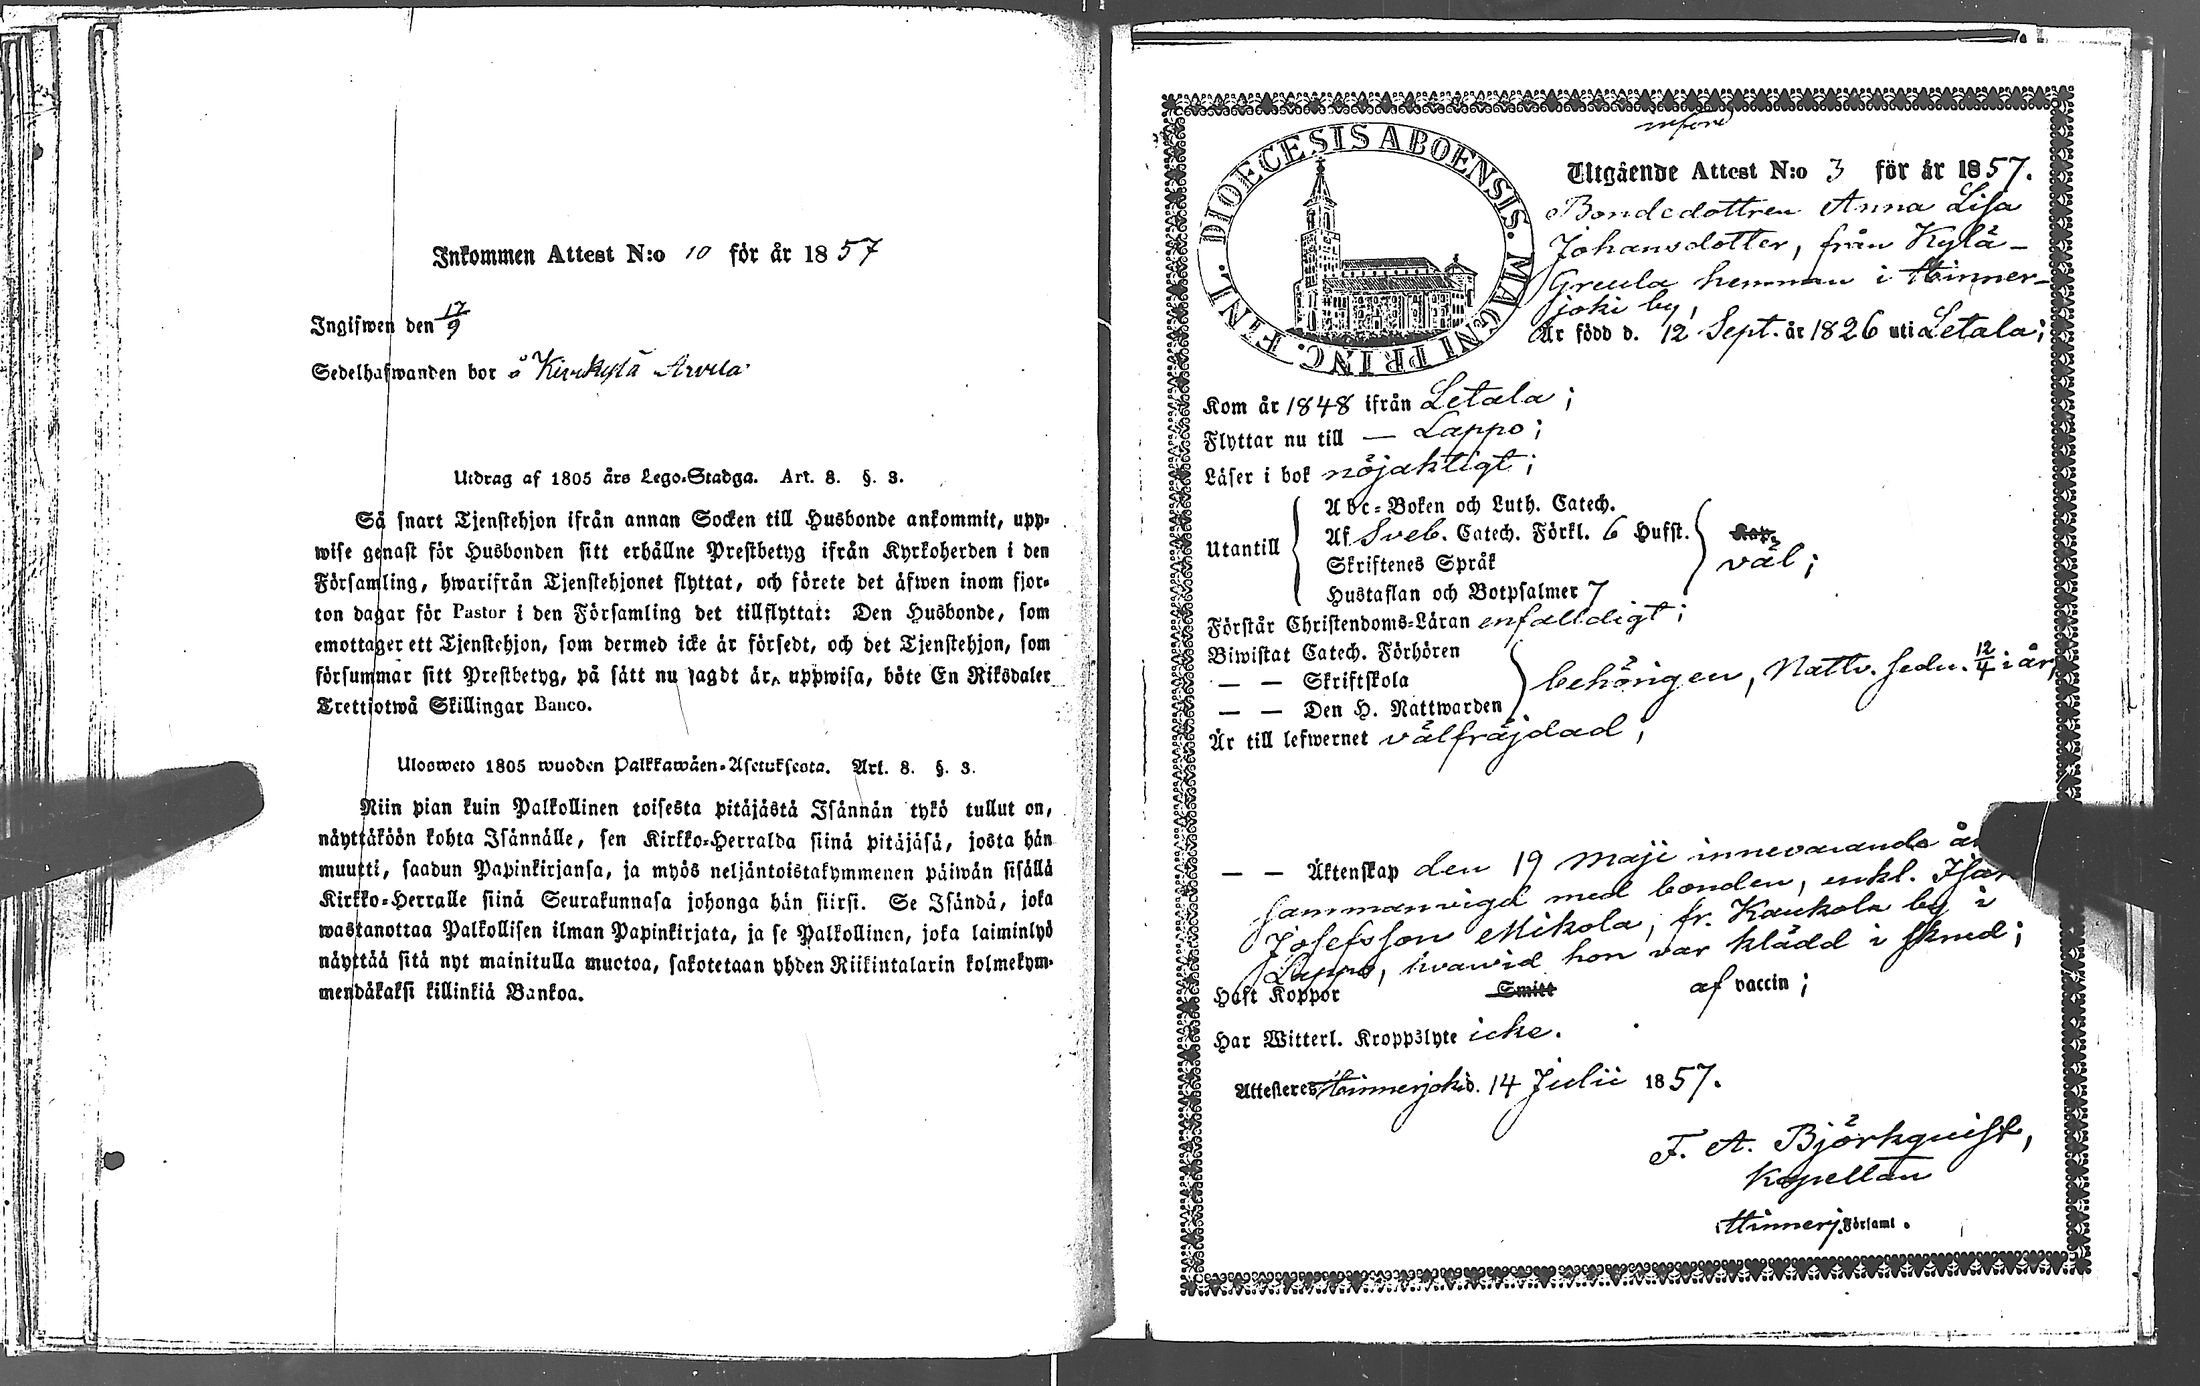 Inkommen Attest N:o 10 för år 1857
Ingifwen den 17/9
Sedelhafwanden bor å Kirkkylä Arvela
Utdrag af 1805 års Lego-Stadga. Art. 8. §. 3.
Så snart Tjenstehjon ifrån annan Socken till Husbonde ankommit, upp-
wise genast för Husbonden sitt erhållne Prestbetyg ifrån Kyrkoherden i den
Församling, hwarifrån Tjenstehjonet flyttat, och förete det äfwen inom fjor-
ton dagar för Pastor i den Församling det tillflyttat: Den Husbonde, som
emottager ett Tjenstehjon, som dermed icke är försedt, och det Tjenstehjon, som
försummar sitt Prestbetyg, på sätt nu sagdt är, uppwisa, böte En Riksdaler
Trettiotwå Skillingar Banco.
Ulosweto 1805 wuoden Palkkawäen-Asetuksesta. Art. 8. §. 3.
Niin pian kuin Palkollinen toisesta pitäjästä Isännän tykö tullut on,
näyttäköön kohta Isännälle, sen Kirkko-Herralda siinä pitäjäsä, josta hän
muutti, saadun Papinkirjansa, ja myös neljäntoistakymmenen päiwän sisällä
Kirkko-Herralle siinä Seurakunnasa johonga hän siirsi. Se Isändä, joka
wastanottaa Palkollisen ilman Papinkirjata, ja se Palkollinen, joka laiminlyö
näyttää sitä nyt mainitulla muotoa, sakotetaan yhden Riikintalarin kolmekym-
mendäkaksi killinkiä Bankoa.
DIOECESIS ABOENSIS. MAGNI PRINC. FINL.
införd
Utgående Attest N:o 3 för år 1857.
Bondedottren Anna Lisa
Johansdotter, från Kylä-
Greula hemman i Hinner-
joki by,
Är född d. 12 Sept. år 1826 uti Letala;
Kom år 1848 ifrån Letala;
Flyttar nu till — Lappo;
Läser i bok nöjaktigt;
Utantill
Abc-Boken och Luth. Catech.
Af Sveb. Catech. Förkl. 6 Hufst.
Skriftenes Språk
Hustaflan och Botpsalmer 7
väl;
Förstår Christendoms-Läran enfalldigt;
Biwistat Catech. Förhören
— — Skriftskola
— — Den H. Nattwarden
behörigen, Nattv. sedn. 12/4 i år,
Är till lefwernet välfräjdad;
— — Äktenskap den 19 Maji innevarande år
sammanvigd med bonden, enkl.
Josefsson Mikola, fr. Kaukola by i
Lappo, hvarvid hon var klädd i skrud;
Haft Koppor Smitt af vaccin;
Har Witterl. Kroppslyte icke.
Attesteres Hinnerjoki d. 14 Julii 1857.
F. A. Björkquist,
Kapellan
Hinnerj. Församl.